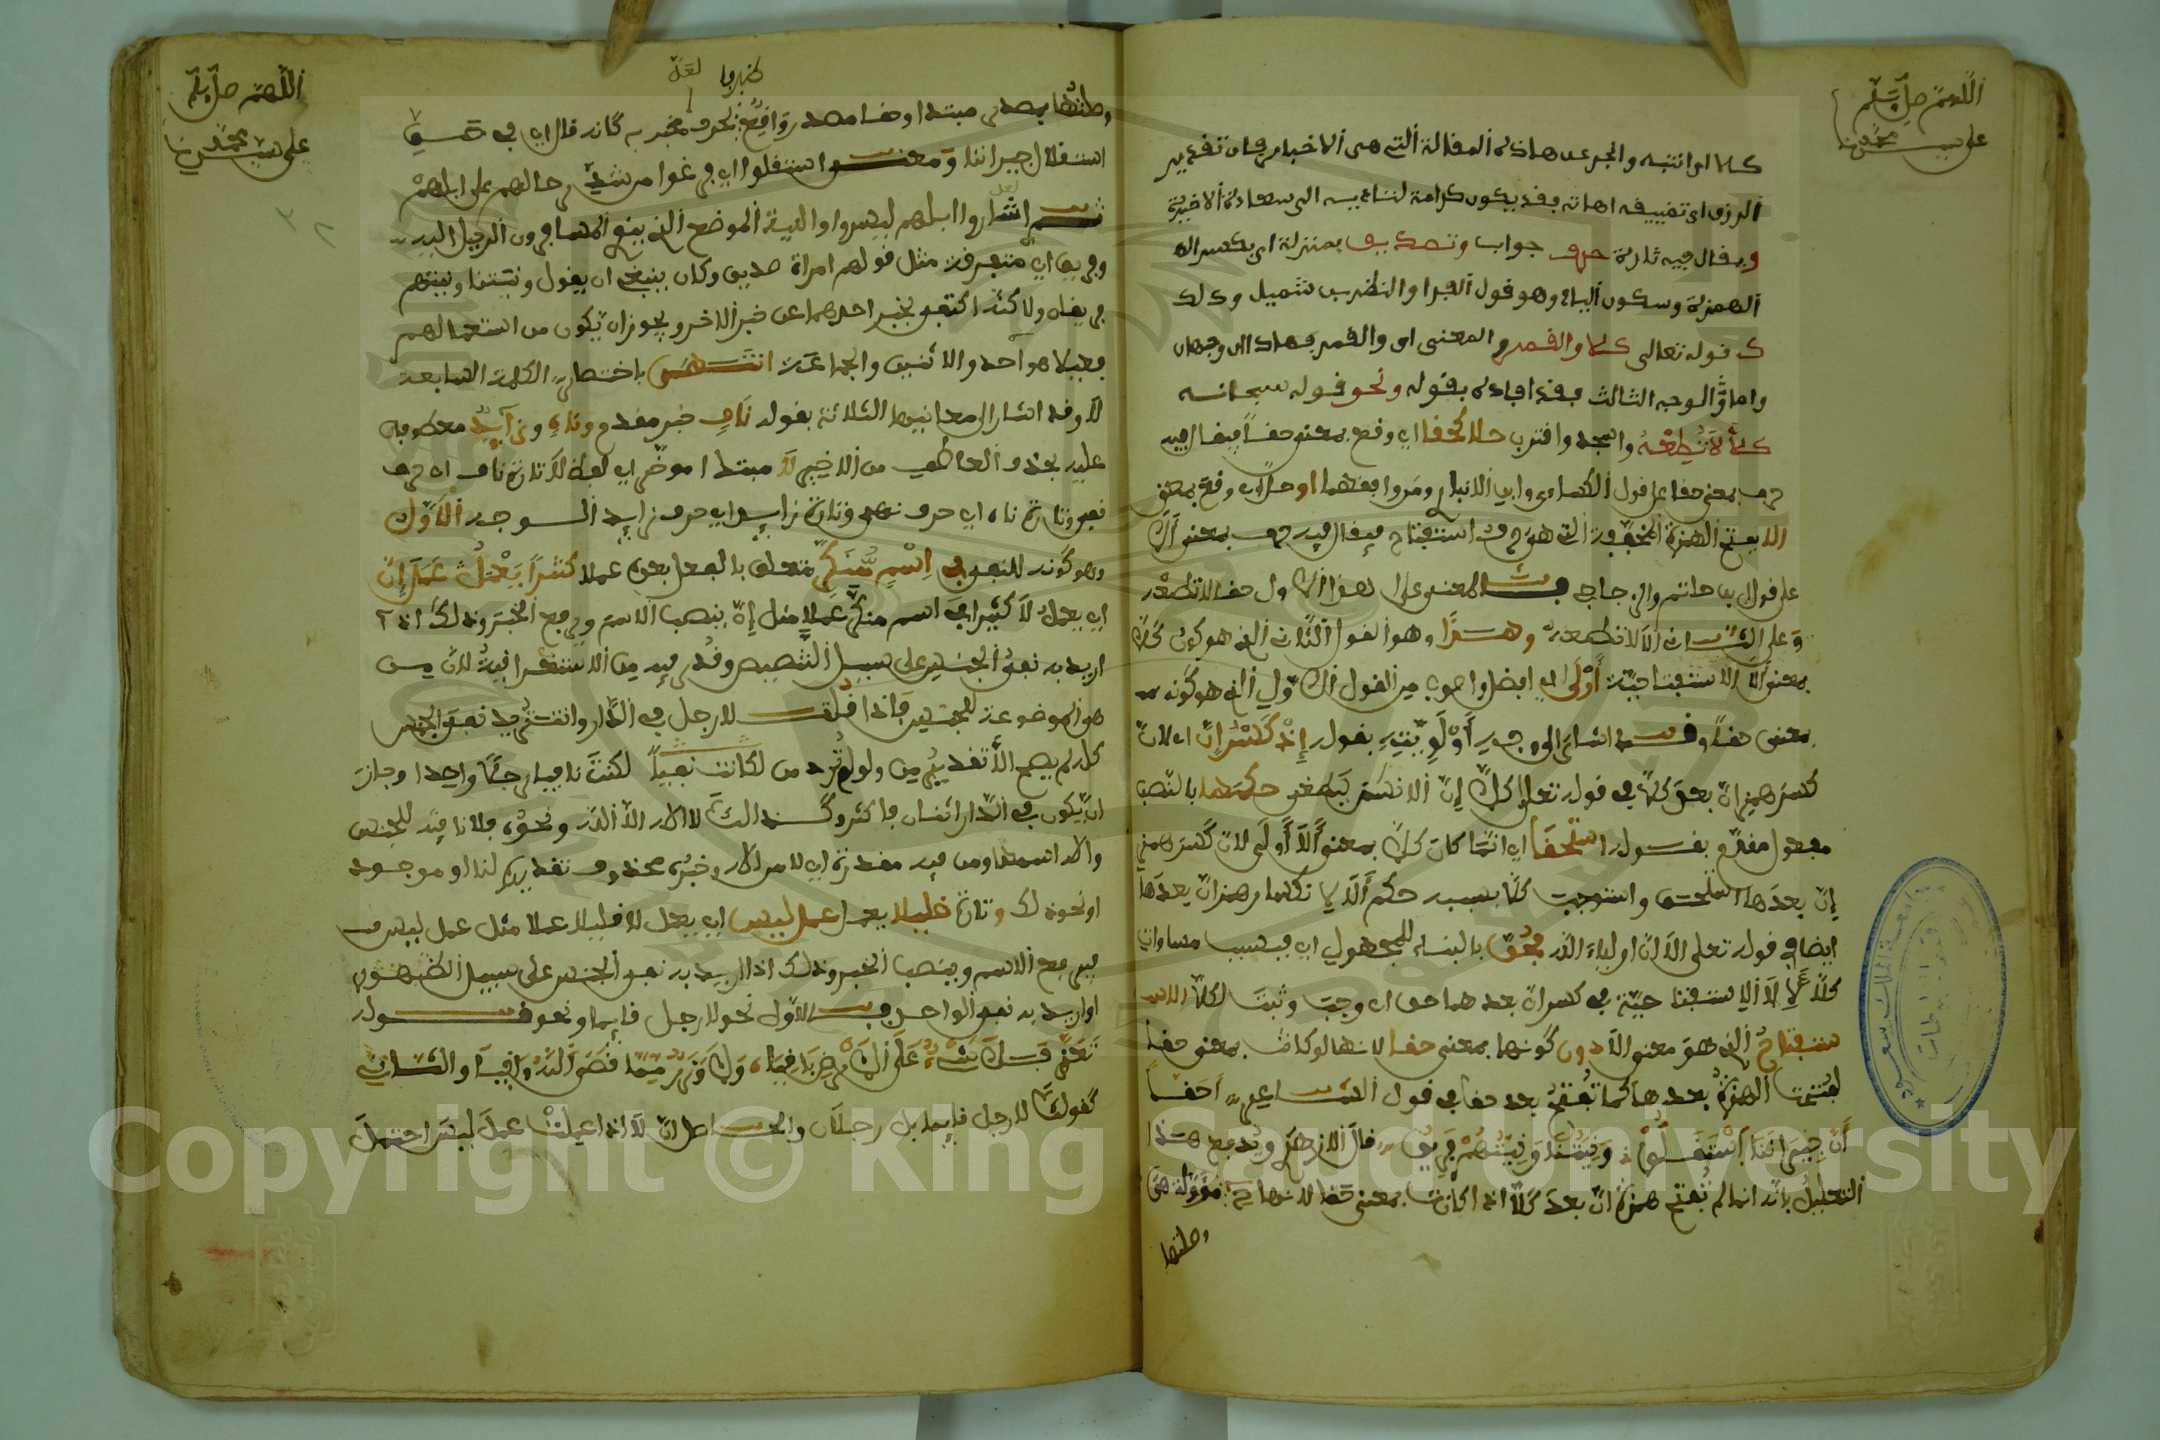 اللهم صل وسلم
على سيدنا محمد
كلا اى انتبه وانجر عن هاذه المقالة التى هى الاخبار بان تقدير
الرزق اى تضييقه اهانة فقد يكون كرامة لتأديبه الى سعادة الاخرة
ويقال فيه تارة حرف جواب وتصديق بمنزلة اى بكسر الهمزة
الهمزة وسكون الياء وهو قول الفراء والنضر بن شميل وذلك
فى قوله تعالى كلا والقمر والمعنى اى والقمر فهاذان وجهان
واما الوجه الثالث فقد افاده بقوله ونحو قوله سبحانه
كلا لا تطعه واسجد واقترب حلا كحقا اى وقع بمعنى حقا فيقال فيه
حرف بمعنى حقا على قول الكسائى وابن الانبارى ومن وافقهما او حل اى وقع بمعنى
الا بفتح الهمزة المخففة التى هى حرف استفتاح فيقال فيه حرف بمعنى الا
على قول ابى حاتم والزجاج فالمعنى على هذا الاول حقا لا تطعه
وعلى الثانى الا لا تطعه وهذا وهو القول الثانى الذى هو كون كلا
بمعنى الا الاستفتاحية أولى اى افضل واصوب من القول الاول الذى هو كونه
بمعنى حقا وقد اشار الى وجه أولويته بقوله إذ كسر إن اى لان
كسر همز ان بعد كلا فى قوله تعلى كلا إن الانسان ليطغى حكمها بالنصب
مفعول مقدم بقوله استحقا اى انما كان كلا بمعنى ألا أولى لان كسر همز
إن بعدها استحق واستوجب كلا بسبب حكم ألا لا تكسر همز ان بعدها
ايضا فى قوله تعلى الا ان اولياء الله فحق بالبناء للمجهول اى فبسبب مساواة
كلا لألا الاستفتاحية فى كسر ان بعدهما حق اى وجب وثبت لكلا الا
ستفتاح الذى هو معنى الا دون كونها بمعنى حقا لانها لو كانت بمعنى حقا
لفتحت الهمزة بعدها كما تفتح بعد حقا فى قول الشاعر أحقا
أن جيرتنا استقلوا فنيتنا ونيتهم فريق قال الازهرى ويدفع هذا
التعليل بانه انما لم تفتح همزة ان بعد كلا اذا كانت بمعنى حقا لانها حرف
وصلتها
اللهم صل وسلم
على سيدنا محمد
لعل
وصلتها بمصدر مبتدا وحقا مصدر واقع ظرف مخبر به كانه قال اى فى حق
استقلال جيراننا ومعنى استقلوا اى فرغوا من شد رحالهم على ابلهم
ثم اثاروا ابلهم ليسيروا والنية الموضع الذى ينوى المسافرون الرحيل اليه
وفريق اى متفرقة مثل قولهم امراة صديق وكان ينبغى ان يقول ونيتنا ونيتهم
فريقان ولاكنه اكتفى بخبر احدهما عن خبر الاخر ويجوز ان يكون من استعمالهم
فعيلا للواحد والاثنين والجماعة انتهى باختصار الكلمة السابعة
لا وقد اشار الى معانيها الثلاثة بقوله ناف خبر مقدم وناه وزايد معطوف
عليه بحذف العاطف من الاخير لا مبتدا موخر اى لفظة لا تارة ناف اى حرف
نفى وتارة ناه اى حرف نهى وتارة زايد اى حرف زايد الوجه الأول
وهو كونه للنفى فى اسم منكر متعلق بالفعل بعده عملا كثيرا يعمل عمل إن
اى يعمل لا كثيرا فى اسم منكر عملا مثل إن بنصب الاسم ورفع الخبر وذلك اذا
اريد به نفى الجنس على سبيل التنصيص وقدر فيه من الاستغراقية لان من
هى الموضوعة للجنس فاذا قلت لا رجل فى الدار وانت تريد نفى الجنس
كله لم يصح الا بتقدير من ولو لم ترد من لكانت نفيا لكنت نافيا رجلا واحدا وجاز
ان يكون فى الدار اثنان فاكثر وكذالك لا اله الا الله ونحوه فلا نافية للجنس
واله اسمها ومن فيه مقدرة اى لا من اله وخبره محذوف تقديره لنا او موجود
او نحو ذلك وتارة قليلا يعمل عمل ليس اى يعمل لا قليلا عملا مثل عمل ليس
فيرفع الاسم وينصب الخبر وذلك اذا اريد به نفى الجنس على سبيل الظهور
او اريد به نفى الواحد فالاول نحو لا رجل قايما ونحو قوله
تعز فلا شىء على الارض باقيا ولا وزر مما قضى الله واقيا والثانى
كقولك لا رجل قايما بل رجلان والحاصل ان لا اذا اعملت عمل ليس احتمل
Copyright © King Saud University